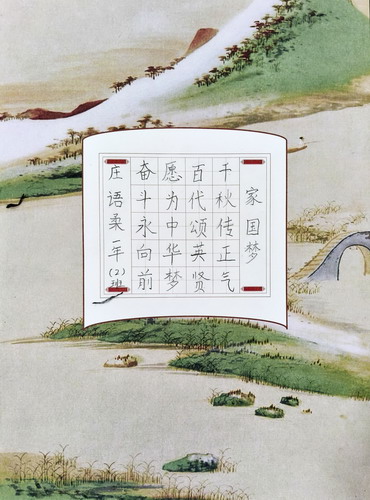 家国梦
千秋传正气
百代颂英贤
愿为中华梦
奋斗永向前
庄语柔一年(2)班